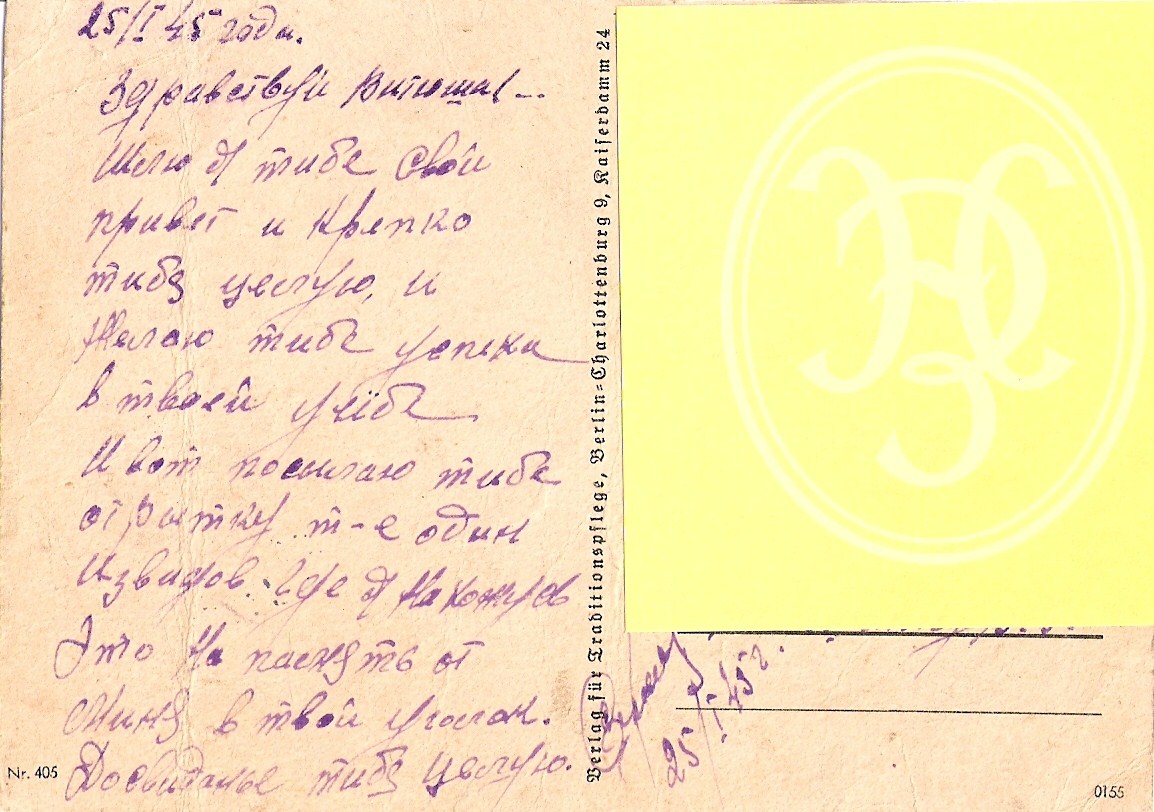 25/I 45 года.
Здравствуй Витюша!--
Шлю Я тибе свой
привет и крепко
тибя целую, и
Желаю тибе успеха
в твоей учёбе
И вот посылаю тибе
открытку т-е один
Извидов. где Я Нахожусь
Это На память от
Миня в твой уголок.
Досвиданье тибя целую.
Nr. 405
Verlag für Traditionspflege, Berlin=Charlottenburg 9, Kaiserdamm 24
25/I 45г.
0155